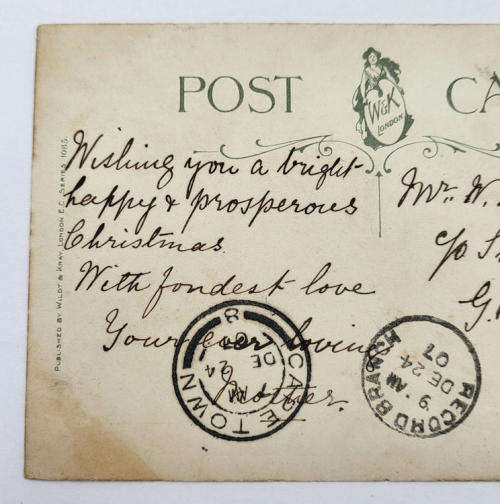 POST CA
W&K
LONDON
PUBLISHED BY WILDT & KRAY LONDON E.C. SERIES 1085
Wishing you a bright
happy & prosperous
Christmas.
With fondest love
Your ever loving
Mother.
Mr. W.
c/o
G.
CAPE TOWN
DE 24
07
RECORD BRANCH
9 AM
DE 24
07